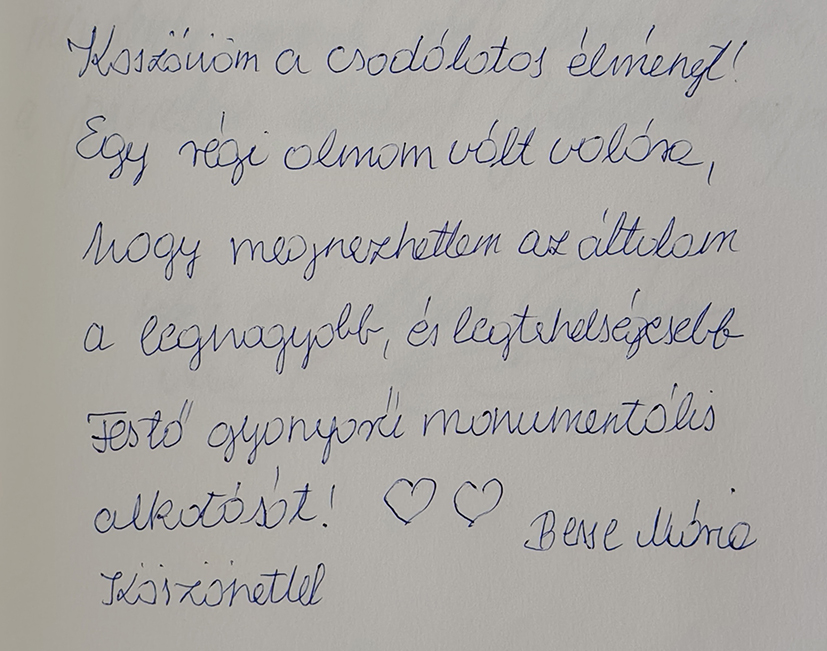 Köszönöm a csodálatos élményt!
Egy régi álmom vált valóra,
hogy megnézhettem az általam
a legnagyobb, és legtehetségesebb
Festő gyönyörű monumentális
alkotását! ♡ ♡
Besse Mária
Köszönettel